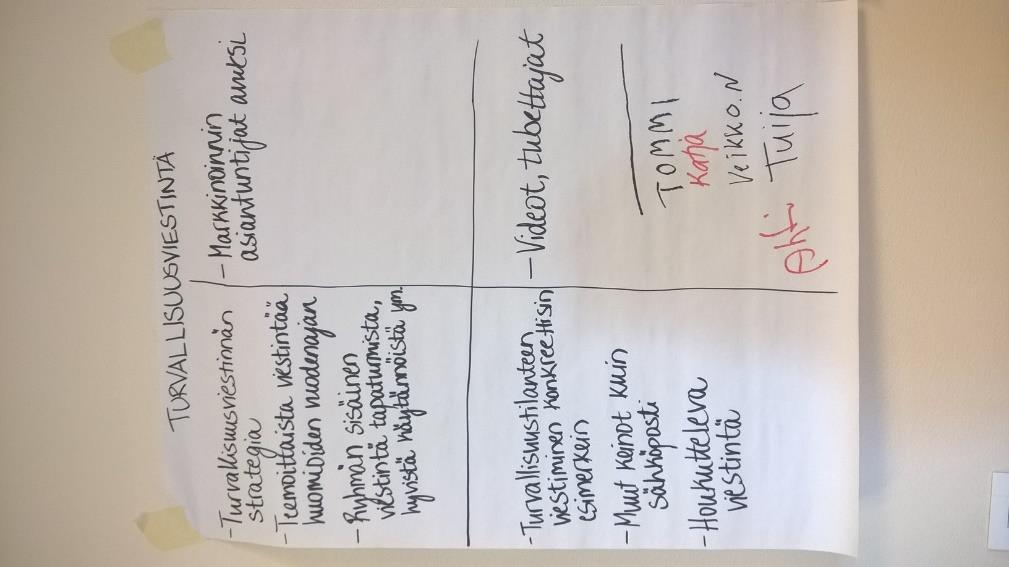 TURVALLISUUSVIESTINTÄ
- Turvallisuusviestinnän
strategia
- Teemoittaista viestintää
huomioiden vuodenajan
- Ryhmän sisäinen
viestintä tapaturmista,
hyvistä näytännöistä ym.
- Markkinoinnin
asiantuntijat avuksi
- Turvallisuustilanteen
viestiminen konkreettisin
esimerkein
- Muut keinot kuin
sähköposti
- Houkutteleva
viestintä
- Videot, tubettajat
TOMMI
Katja
Veikko.N
Tuija